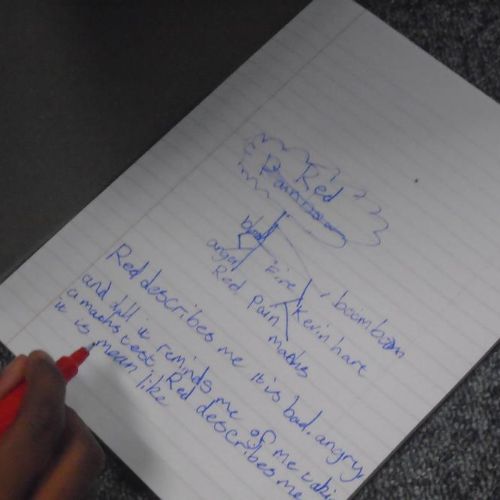 Red
Pain
bad
anger
Fire
boom boom
Red Pain
Kevin hart
maths
Red describes me it is bad, angry
and dull it reminds me of me
a maths test, Red describes me
it is mean like